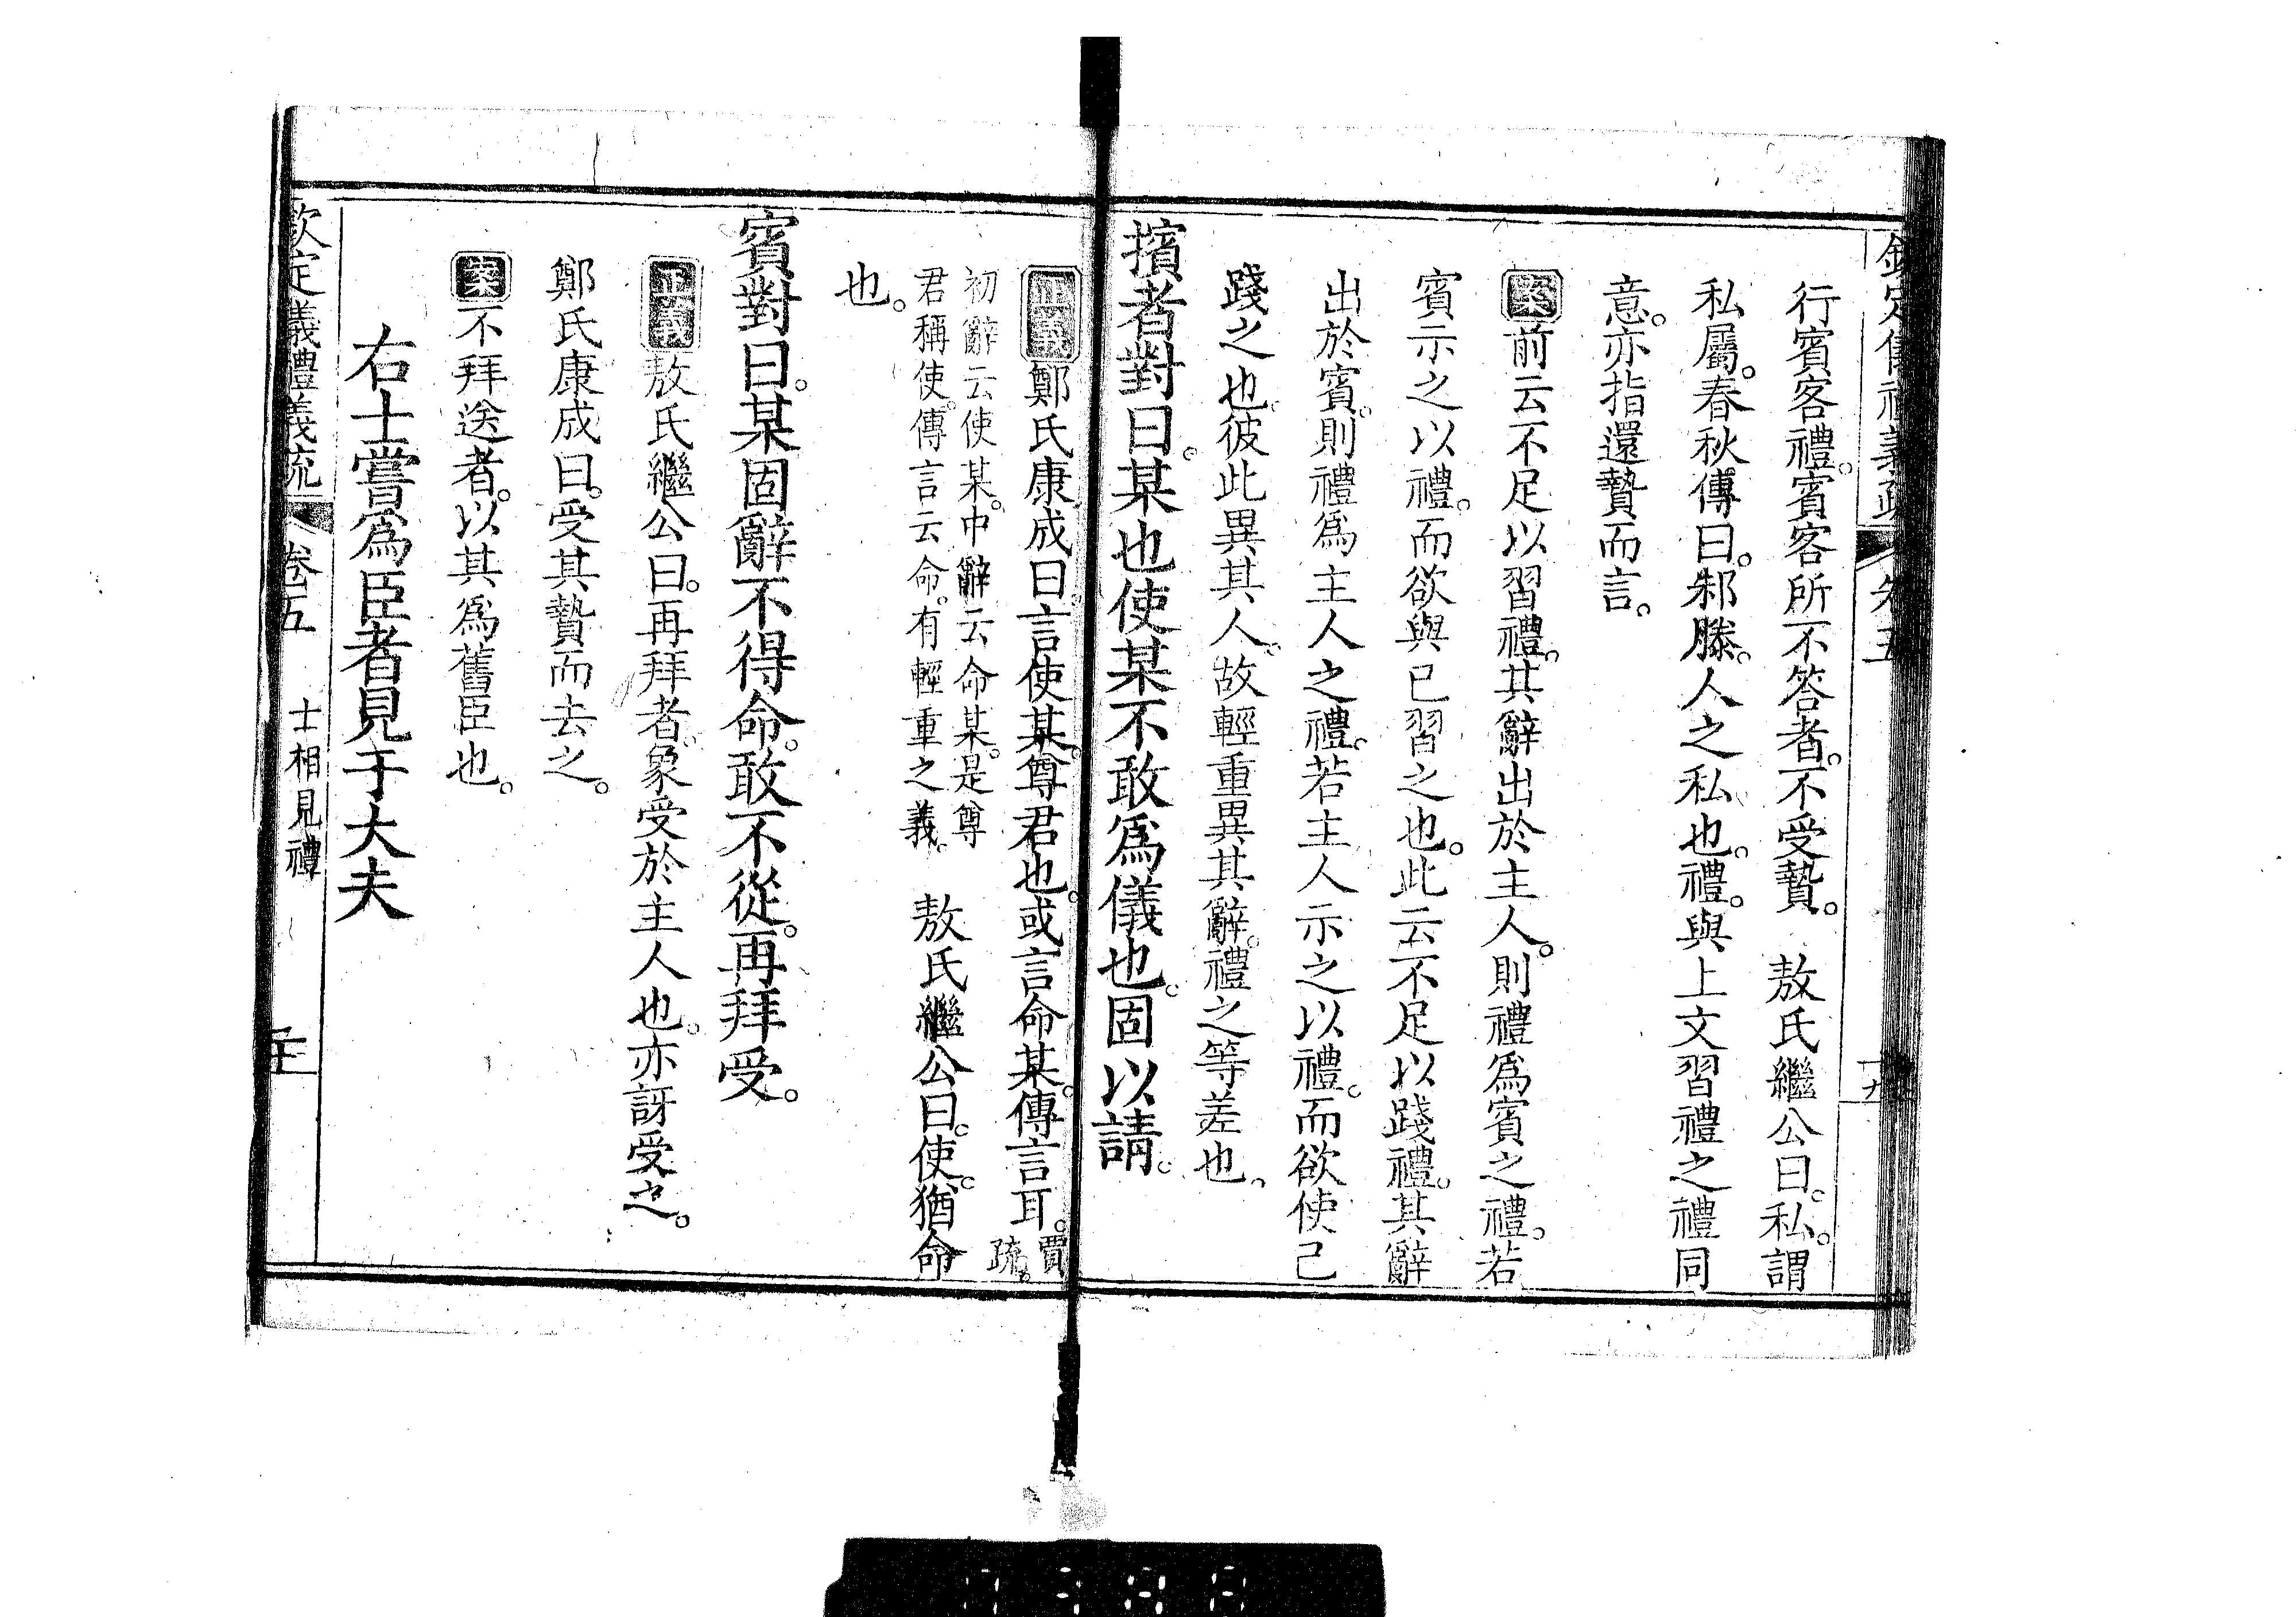 欽定儀禮義疏 卷五 十九
行賓客禮。賓客所不答者。不受贄。 敖氏繼公曰。私。謂
私屬。春秋傳曰。邾滕。人之私也。禮。與上文習禮之禮同
意。亦指還贄而言。
案前云不足以習禮。其辭出於主人。則禮爲賓之禮。若
賓示之以禮。而欲與已習之也。此云不足以踐禮。其辭
出於賓。則禮爲主人之禮。若主人示之以禮。而欲使己
踐之也。彼此異其人。故輕重異其辭。禮之等差也。
擯者對曰。某也使某不敢爲儀也。固以請。
正義鄭氏康成曰。言使某。尊君也。或言命某。傳言耳。賈疏。
初辭云使某。中辭云命某。是尊
君稱使。傳言云命。有輕重之義。 敖氏繼公曰。使。猶命
也。
賓對曰。某固辭不得命。敢不從。再拜受。
正義敖氏繼公曰。再拜者。象受於主人也。亦訝受之。
鄭氏康成曰。受其贄而去之。
案不拜送者。以其爲舊臣也。
右士嘗爲臣者見于大夫
欽定儀禮義疏 卷五 士相見禮 二十